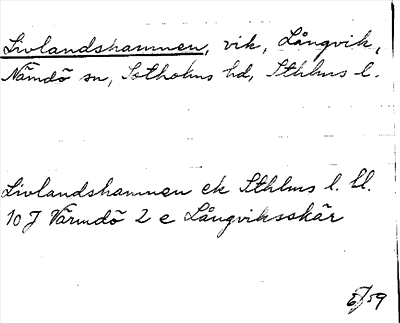 Livlandshamnen, vik, Långvik,
Nämdö sn, Sotholms hd, Sthlms l.
Livlandshamnen ek Sthlms l. bl.
10 J Värmdö 2 e Långviksskär